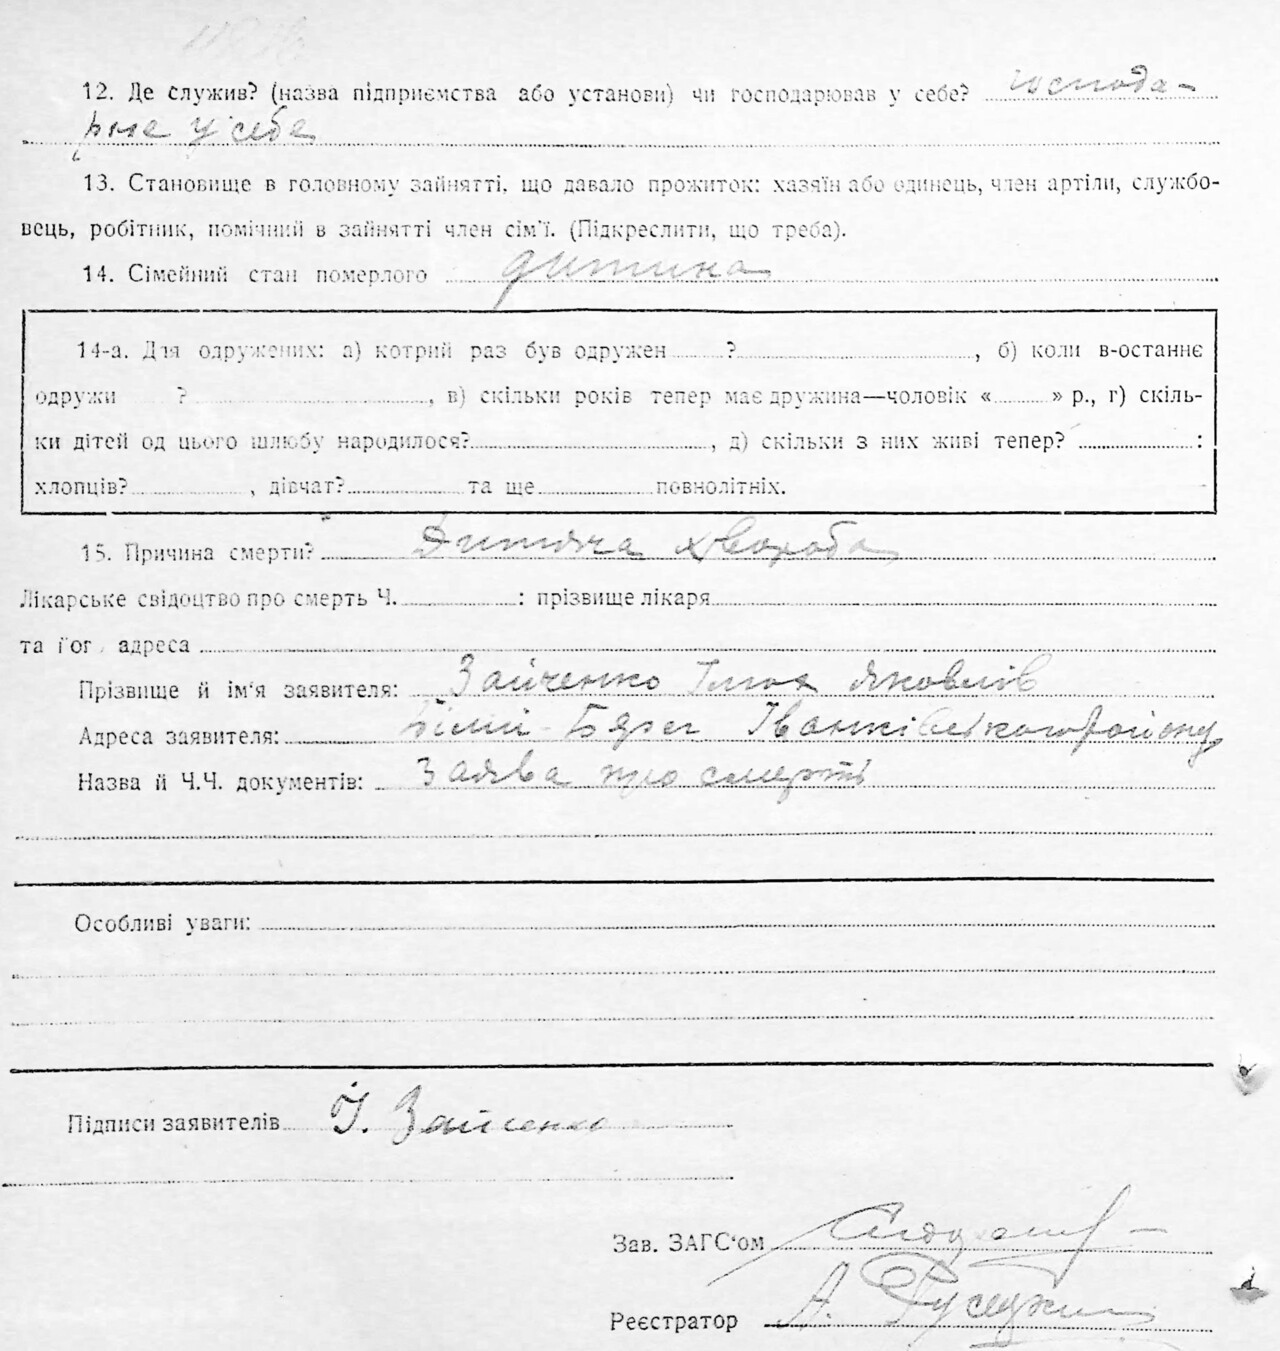 12. Де служив? (назва підприємства або установи) чи господарював у себе? господа-
рює у себе
13. Становище в головному зайнятті, що давало прожиток: хазяїн або одинець, член артіли, службо-
вець, робітник, помічний в зайнятті член сім'ї. (Підкреслити, що треба).
14. Сімейний стан померлого дитина
14-а. Для одружених: а) котрий раз був одружен ?, б) коли в-останнє
одружи ?, в) скільки років тепер має дружина—чоловік « » р., г) скіль-
ки дітей од цього шлюбу народилося?, д) скільки з них живі тепер? :
хлопців? , дівчат? та ще повнолітніх.
15. Причина смерти? Дитяча хвороба
Лікарське свідоцтво про смерть Ч. : прізвище лікаря
та його адреса
Прізвище й ім'я заявителя: Зайченко Ілля Яковлів
Адреса заявителя: Білий-Берег Іванківського району
Назва й Ч.Ч. документів: Заява про смерть
Особливі уваги:
Підписи заявителів І. Зайченко
Зав. ЗАГС'ом
Реєстратор А.